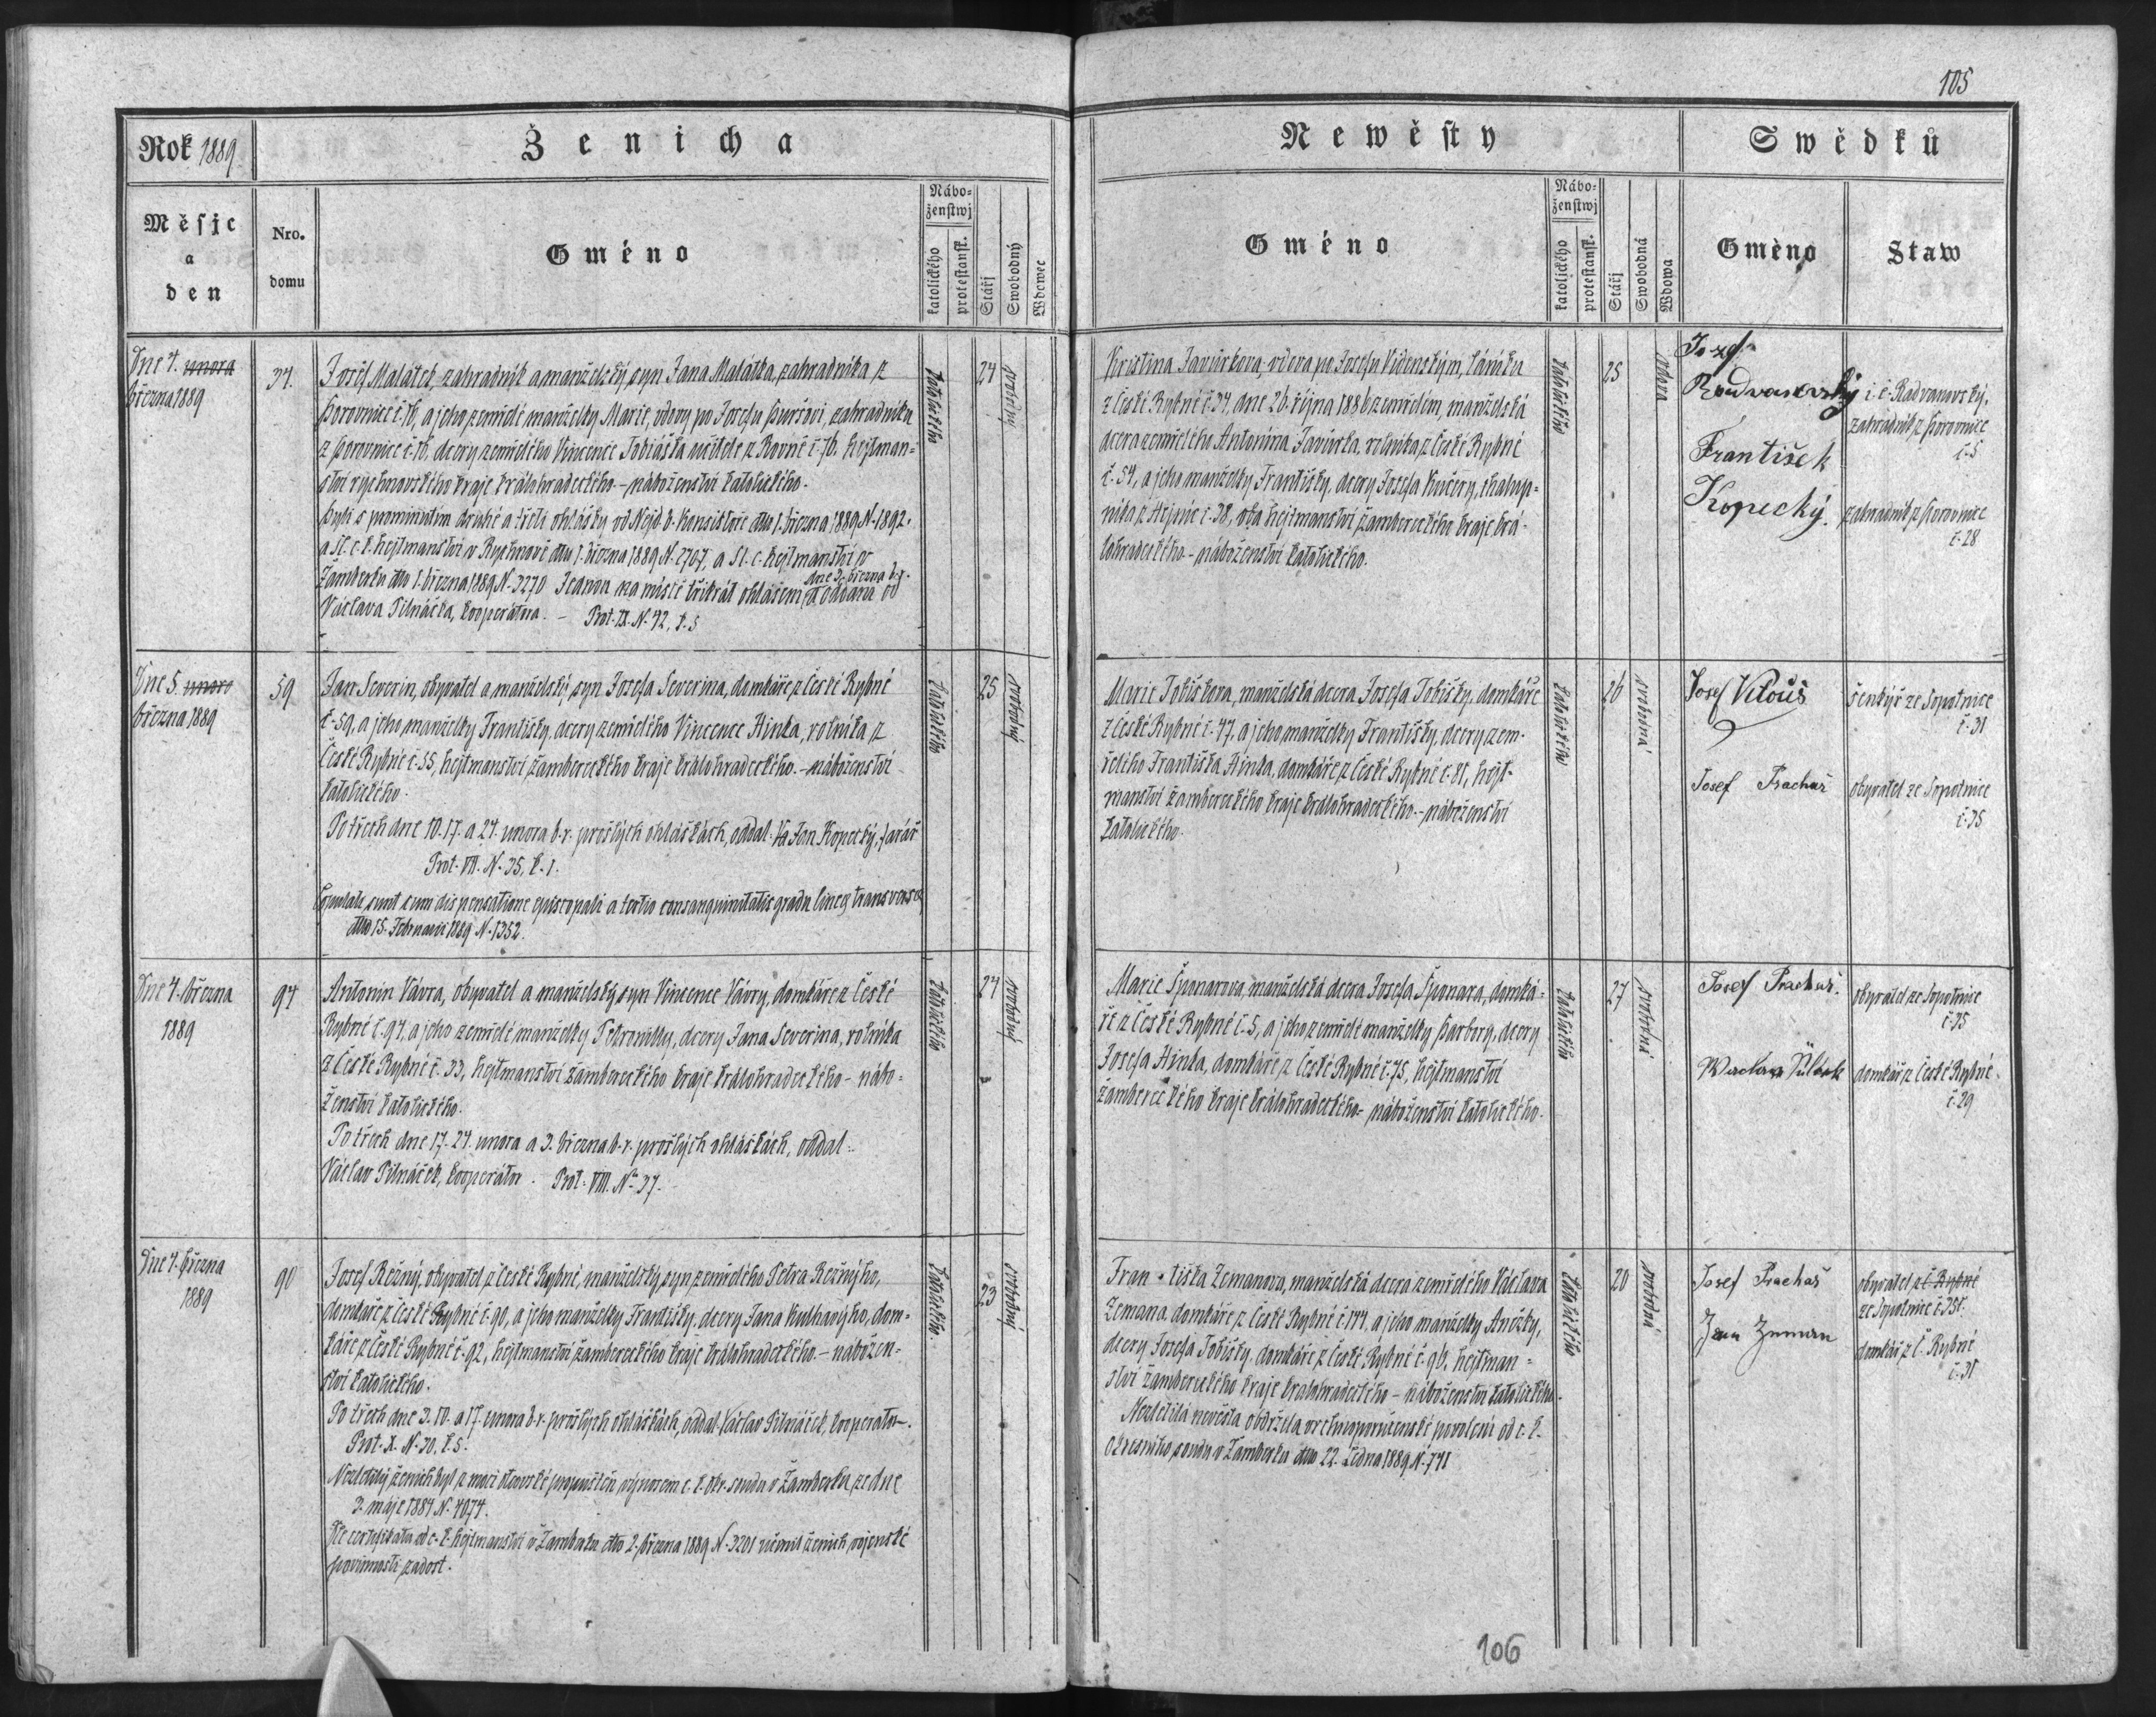 105
Rok 1889.
Ženicha
Newěsty
Swědků
Měsjc
a
den
Nro.
domu
Gméno
Nábo=
ženstwj
katolického
protestansk.
Stářj
Swobodný
Wdowec
Gméno
Nábo=
ženstwj
katolického
protestansk.
Stářj
Swobodná
Wdowa
Gméno
Staw
Dne 4. února
března 1889
34.
Josef Malátek, zahradník a manželský syn Jana Malátka, zahradníka z
Borovnice č. 16, a jeho zemřelé manželky Marie, vdovy po Josefu zahradníku
z Borovnice č. 16. dcery zemřelého Vincence Tobiáška učitele z Rovně č. 76. hejtman=
ství rychnovského kraje králohradeckého - náboženství katolického.
Byli s prominutím druhé a třetí ohlášky od Nejd. b. Konsistoře dto 1. března 1889 N. 1892.
a Sl. c. k. hejtmanství v Rychnově dto 1. března 1889 N. 2707, a Sl. c. hejtmanství v
Žamberku dto 1. března 1889 N. 3270 Jednou na místě třikrát ohlášeni, dne 3. března b. r. a oddáni od
Václava Pilnáčka, kooperátora. - Prot. IX. N. 42, k. 5
katolického
24
svobodný
Kristina Javůrkova, vdova po Josefu Videnským, láníku
z České Rybné č. 34, dne 26. října 1886 zemřelém, manželská
dcera zemřelého Antonína Javůrka, rolníka z České Rybné
č. 54, a jeho manželky Františky, dcery Josefa Kučery, chalup=
níka z Hejnic č. 38, oba hejtmanství žambereckého kraje krá-
lohradeckého - náboženství katolického.
katolického
25
vdova
Jozef
Radvanovský
i. č. Radvanovský,
zahradník z Borovnice
č. 5
František
Kopecký.
zahradník z Borovnice
č. 28
Dne 5. února
března 1889
59
Jan Severin, obyvatel a manželský syn Josefa Severina, domkáře z České Rybné
č. 59, a jeho manželky Františky, dcery zemřelého Vincence Hinka, rolníka z
České Rybné č. 55, hejtmanství žambereckého kraje králohradeckého. - náboženství
katolického.
Po třech dne 10. 17. a 24. února b. r. prošlých ohláškách, oddal Jan Kopecký, farář
Prot. VIII. N. 35, k. 1.
Copulati sunt cum dispensatione episcopali a tertio consanquinitatis gradu lineæ transversæ
dtto 15. Februarii 1889 N. 1352.
katolického
25
svobodný
Marie Tobiškova, manželská dcera Josefa Tobišky, domkáře
z České Rybné č. 47, a jeho manželky Františky, dcery zem-
řelého Františka Hinka, domkáře z České Rybné č. 81, hejt-
manství žambereckého kraje králohradeckého. - náboženství
katolického.
katolického
26
svobodná
Josef Vitouš
šenkýř ze Sopotnice
č. 31
Josef Prachař
obyvatel ze Sopotnice
č. 35
Dne 4. března
1889
94
Antonin Vávra, obyvatel a manželský syn Vincence Vávry, domkáře z České
Rybné č. 94, a jeho zemřelé manželky Petronilly, dcery Jana Severina, rolníka
z České Rybné č. 33, hejtmanství žambereckého kraje králohradeckého - nábo=
ženství katolického.
Po třech dne 17. 24. února a 3. března b. r. prošlých ohláškách, oddal
Václav Pilnáček, kooperátor. Prot. VIII. N. 37.
katolického
24
svobodný
Marie Španarova, manželská dcera Josefa Španara, domká=
ře z České Rybné č. 5, a jeho zemřelé manželky Barbory, dcery
Josefa Hinka, domkáře z České Rybné č. 75, hejtmanství
žambereckého kraje králohradeckého - náboženství katolického.
katolického
27
svobodná
Josef Prachař.
obyvatel ze Sopotnice
č. 35
domkář z České Rybné
č. 29
Dne 4. března
1889
90
Josef Režný, obyvatel z České Rybné, manželský syn zemřelého Petra Režnýho,
domkáře z České Rybné č. 90, a jeho manželky Františky, dcery Jana Kulhavýho, dom=
káře z České Rybné č. 92, hejtmanství žambereckého kraje králohradeckého. - nábožen=
ství katolického.
Po třech dne 3. 10. a 17. února b. r. prošlých ohláškách, oddal Václav Pilnáček, kooperátor.
Prot. X. N. 30, k. 5.
Nezletilý ženich byl z moci otcovské propuštěn výnosem c. k. okr. soudu v Žamberku ze dne
3. máje 1884 N. 4074.
Dle certifikátu od c. k. hejtmanství v Žamberku dto 2. března 1889 N. 3201 učinil ženich vojenské
povinnosti zadost.
katolického.
23
svobodný
Františka Zemanova, manželská dcera zemřelého Václava
Zemana, domkáře z České Rybné č. 144, a jeho manželky Anežky,
dcery Josefa Tobišky, domkáře z České Rybné č. 96. hejtman=
ství žambereckého kraje králohradeckého - náboženství katolického.
Nezletilá nevěsta obdržela vrchnoporučenské povolení od c. k.
Okresního soudu v Žamberku dto 22. ledna 1889 N. 741
katolického
20
svobodná
Josef Prachař
obyvatel z Č. Rybné
ze Sopotnice č. 35.
Jan Zeman
domkář z Č. Rybné
č. 31
106